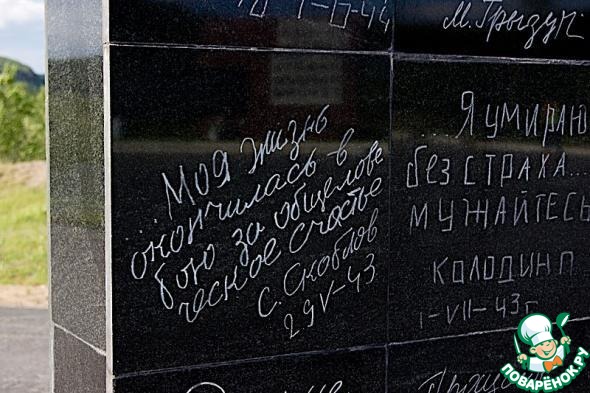 1-VI-44
М. Грызун
Моя жизнь
окончилась в
бою за общелове
ческое счастье
С. Скоблов
29 V-43
...Я умираю
без страха...
мужайтесь
Колодина
1-VII-43г
ПОВАРЁНОК.РУ